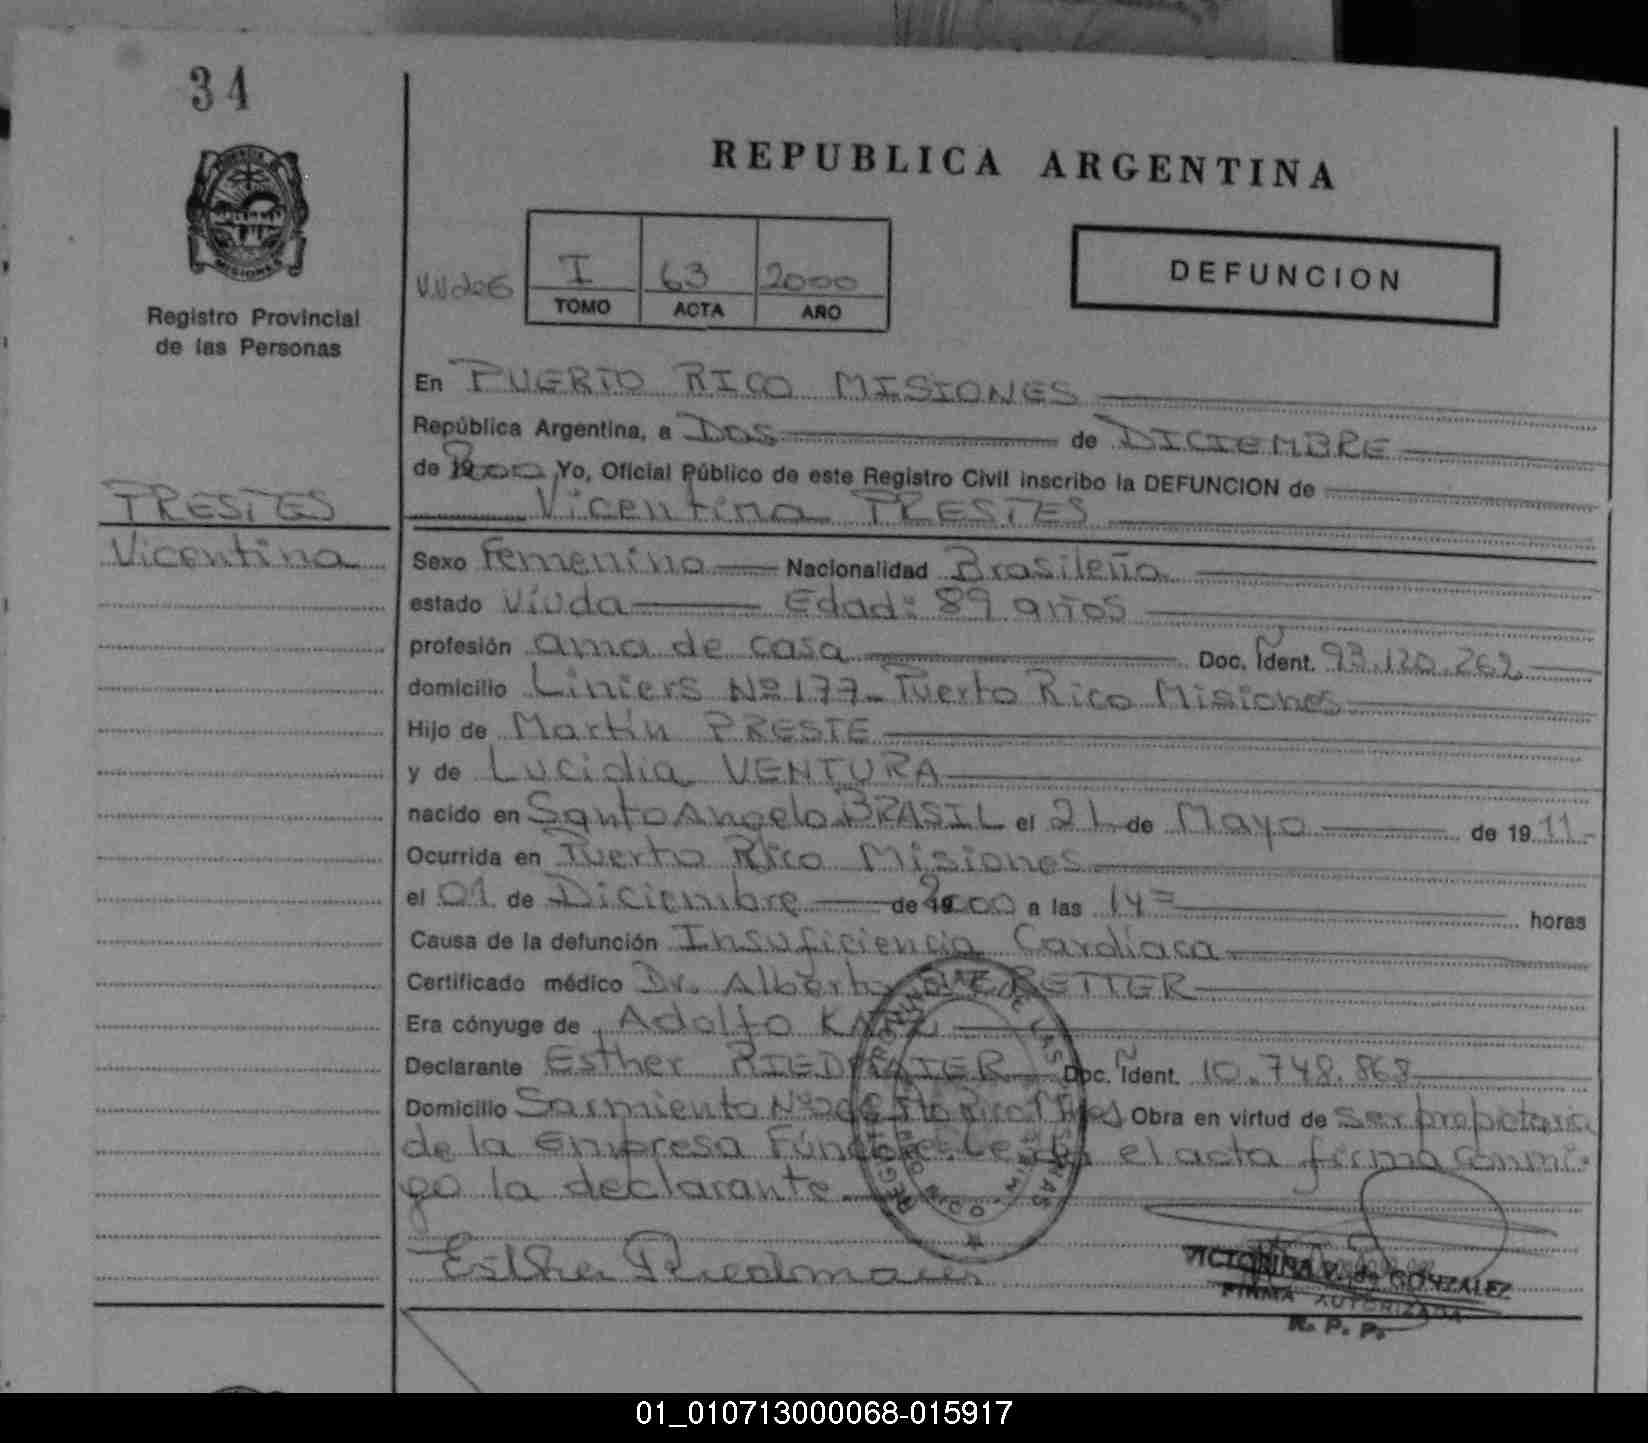 34
REPUBLICA ARGENTINA
DEFUNCION
I 63 2000
TOMO ACTA AÑO
MISIONES
Registro Provincial
de las Personas
En PUERTO RICO MISIONES
República Argentina, a Dos de DICIEMBRE
de 2000 Yo, Oficial Público de este Registro Civil inscribo la DEFUNCION de
PRESTES
Vicentina PRESTES
Vicentina
Sexo Femenino Nacionalidad Brasileña
estado Viuda Edad: 89 años
profesión ama de casa Doc. Ident. 93.120.262
domicilio Liniers Nº 177 - Puerto Rico Misiones
Hijo de Martín PRESTE
y de Lucidia VENTURA
nacido en Santo Angelo BRASIL el 21 de Mayo de 19 11
Ocurrida en Puerto Rico Misiones
el 01 de Diciembre de 2000 a las 14 horas
Causa de la defunción Insuficiencia Cardíaca
Certificado médico Dr. Alberto
Era cónyuge de Adolfo
Declarante Esther RIEDMAIER Doc. Ident. 10.748.868
Domicilio Sarmiento Nº Pto Rico Mnes Obra en virtud de ser propietaria
de la Empresa Fúnebre. Leída el acta firma conmi-
go la declarante
Esther Riedmaier
VICTORINA V. de GONZALEZ
FIRMA AUTORIZADA
R. P. P.
01_010713000068-015917